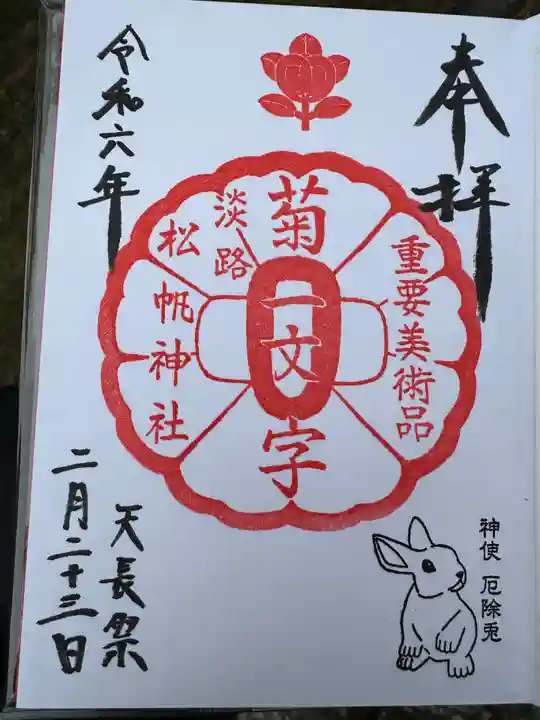 奉拝
重要美術品
菊一文字
淡路
松帆神社
令和六年
二月二十三日
天長祭
神使 厄除兎